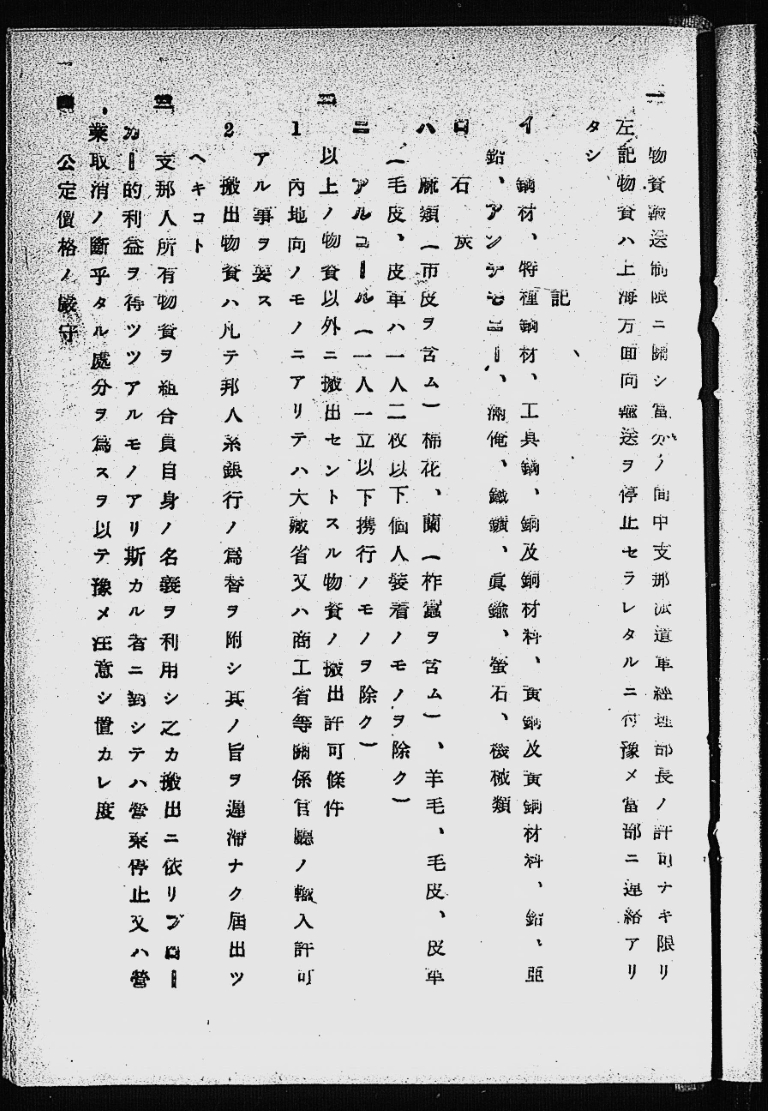 一 物資輸送制限ニ關シ當分ノ間中支那派遣軍經理部長ノ許可ナキ限リ
左記物資ハ上海方面向輸送ヲ停止セラレタルニ付豫メ當部ニ連絡アリ
タシ
記
イ 鋼材、特種鋼材、工具鋼、銅及銅材料、眞鍮及眞鍮材料、鉛、亞
鉛、アンチモニー、滿俺、鐵鑛、眞鍮、螢石、機械類
ロ 石灰
ハ 麻類（市皮ヲ含ム）棉花、蘭（柞蠶ヲ含ム）、羊毛、毛皮、皮革
（毛皮、皮革ハ一人二枚以下個人裝着ノモノヲ除ク）
ニ アルコール（一人一立以下携行ノモノヲ除ク）
二 以上ノ物資以外ニ搬出セントスル物資ノ搬出許可條件
1 內地向ノモノニアリテハ大藏省又ハ商工省等關係官廳ノ輸入許可
アル事ヲ要ス
2 搬出物資ハ凡テ邦人系銀行ノ爲替ヲ附シ其ノ旨ヲ遲滯ナク屆出ツ
ヘキコト
三 支那人所有物資ヲ組合員自身ノ名義ヲ利用シ之カ搬出ニ依リブロー
カー的利益ヲ得ツツアルモノアリ斯カル者ニ對シテハ營業停止又ハ營
業取消ノ斷乎タル處分ヲ爲スヲ以テ豫メ注意シ置カレ度
四 公定價格ノ嚴守